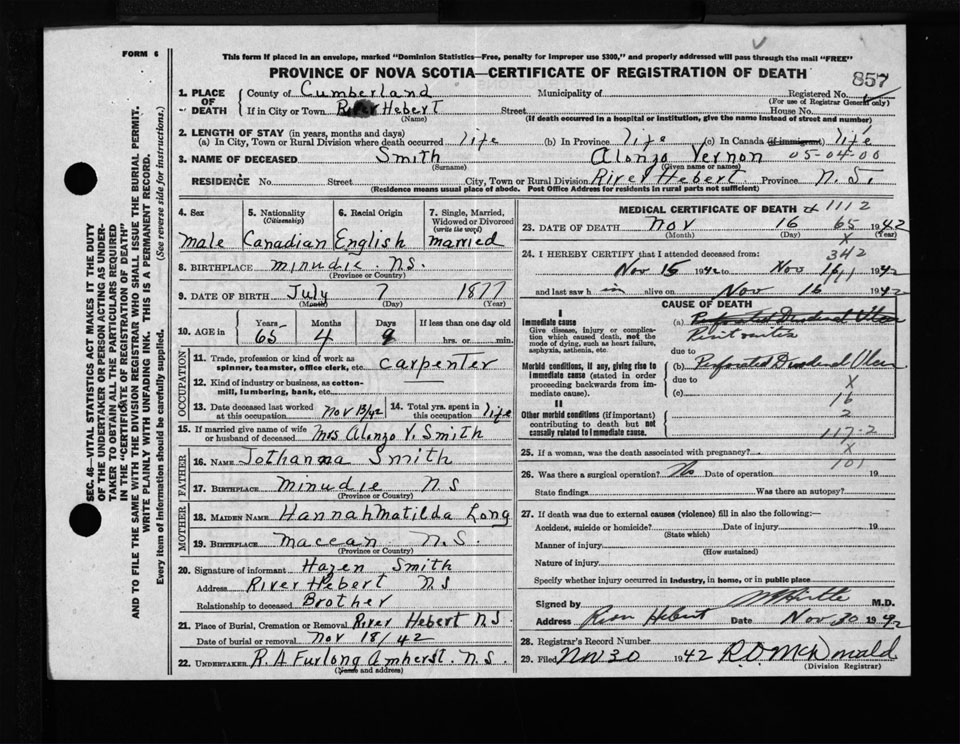 FORM 6
This form if placed in an envelope, marked "Dominion Statistics—Free, penalty for improper use $300," and properly addressed will pass through the mail "FREE"
PROVINCE OF NOVA SCOTIA—CERTIFICATE OF REGISTRATION OF DEATH
857
1. PLACE OF DEATH
County of Cumberland Municipality of Registered No.
(For use of Registrar General only)
If in City or Town River Hebert Street House No.
(Name) (If death occurred in a hospital or institution, give the name instead of street and number)
2. LENGTH OF STAY (in years, months and days)
(a) In City, Town or Rural Division where death occurred life (b) In Province life (c) In Canada (if immigrant) life
3. NAME OF DECEASED Smith Alonzo Vernon 05-04-00
(Surname) (Given name or names)
RESIDENCE No. Street City, Town or Rural Division River Hebert Province N.S.
(Residence means usual place of abode. Post Office Address for residents in rural parts not sufficient)
4. Sex
male
5. Nationality
(Citizenship)
Canadian
6. Racial Origin
English
7. Single, Married, Widowed or Divorced
(write the word)
married
8. BIRTHPLACE Minudie N.S.
(Province or Country)
9. DATE OF BIRTH July 7 1877
(Month) (Day) (Year)
10. AGE in
Years Months Days If less than one day old
65 4 9 hrs. or min.
OCCUPATION
11. Trade, profession or kind of work as spinner, teamster, office clerk, etc. carpenter
12. Kind of industry or business, as cotton-mill, lumbering, bank, etc.
13. Date deceased last worked at this occupation Nov 13/42
14. Total yrs. spent in this occupation life
15. If married give name of wife or husband of deceased Mrs Alonzo V. Smith
FATHER
16. NAME Smith
17. BIRTHPLACE Minudie N.S
(Province or Country)
MOTHER
18. MAIDEN NAME Hannah Matilda Long
19. BIRTHPLACE Maccan N.S.
(Province or Country)
20. Signature of informant Hazen Smith
Address River Hebert N S
Relationship to deceased Brother
21. Place of Burial, Cremation or Removal River Hebert N S
Date of burial or removal Nov 18/42
22. UNDERTAKER R.A Furlong Amherst. N.S.
(Name and address)
MEDICAL CERTIFICATE OF DEATH 1112
23. DATE OF DEATH Nov 16 65 1942
(Month) (Day) (Year)
x
24. I HEREBY CERTIFY that I attended deceased from: 342
Nov 15 1942 to Nov 16 1942
and last saw h im alive on Nov 16 1942
CAUSE OF DEATH
I
Immediate cause
Give disease, injury or complication which caused death, not the mode of dying, such as heart failure, asphyxia, asthenia, etc.
(a) Perforated Duodenal Ulcer
Peritonitis
due to
Morbid conditions, if any, giving rise to immediate cause (stated in order proceeding backwards from immediate cause).
(b) Perforated Duodenal Ulcer
due to x
(c) 16
II
Other morbid conditions (if important) contributing to death but not causally related to immediate cause.
2
117-2
x
25. If a woman, was the death associated with pregnancy?
101
26. Was there a surgical operation? No Date of operation 19
State findings Was there an autopsy?
27. If death was due to external causes (violence) fill in also the following:—
Accident, suicide or homicide? Date of injury 19
(State which)
Manner of injury
(How sustained)
Nature of injury
Specify whether injury occurred in industry, in home, or in public place
Signed by M.D.
Address River Hebert Date Nov. 30 1942
28. Registrar's Record Number
29. Filed Nov 30 1942 R.D. McDonald
(Division Registrar)
SEC. 46—VITAL STATISTICS ACT MAKES IT THE DUTY
OF THE UNDERTAKER OR PERSON ACTING AS UNDER-
TAKER TO OBTAIN ALL THE PARTICULARS REQUIRED
IN THE "CERTIFICATE OF REGISTRATION OF DEATH"
AND TO FILE THE SAME WITH THE DIVISION REGISTRAR WHO SHALL ISSUE THE BURIAL PERMIT.
WRITE PLAINLY WITH UNFADING INK. THIS IS A PERMANENT RECORD.
Every item of information should be carefully supplied. (See reverse side for instructions.)